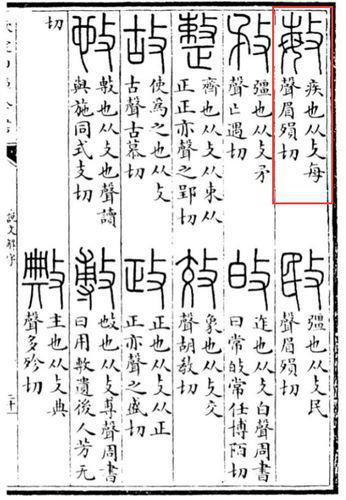 敏
疾也从攴每
聲眉殞切
敃
彊也从攴民
聲眉殞切
敄
彊也从攴矛
聲亡遇切
敀
迮也从攴白聲周書
曰常敀常任博陌切
整
齊也从攴束从
正正亦聲之郢切
效
象也从攴交
聲胡教切
故
使為之也从攴
古聲古慕切
政
正也从攴从正
正亦聲之盛切
𢻱
敷也从攴也聲讀
與施同式支切
敷
𢻱也从攴尃聲周書
曰用敷遺後人芳无
切
敟
主也从攴典
聲多殄切
說文解字